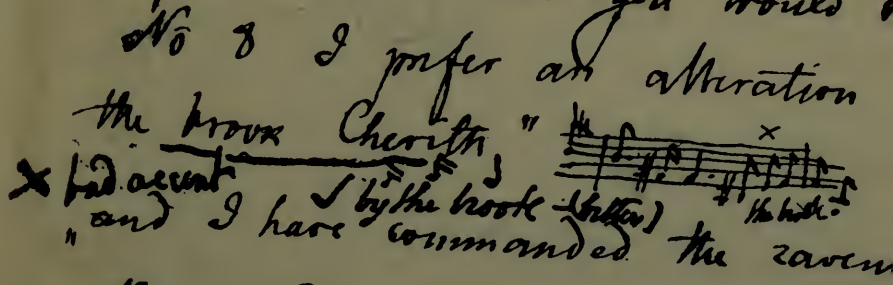 you would
No 8 I prefer an alteration
the brook Cherith"
x bad accent (by the brook - (better) the brook.
"and I have commanded the raven